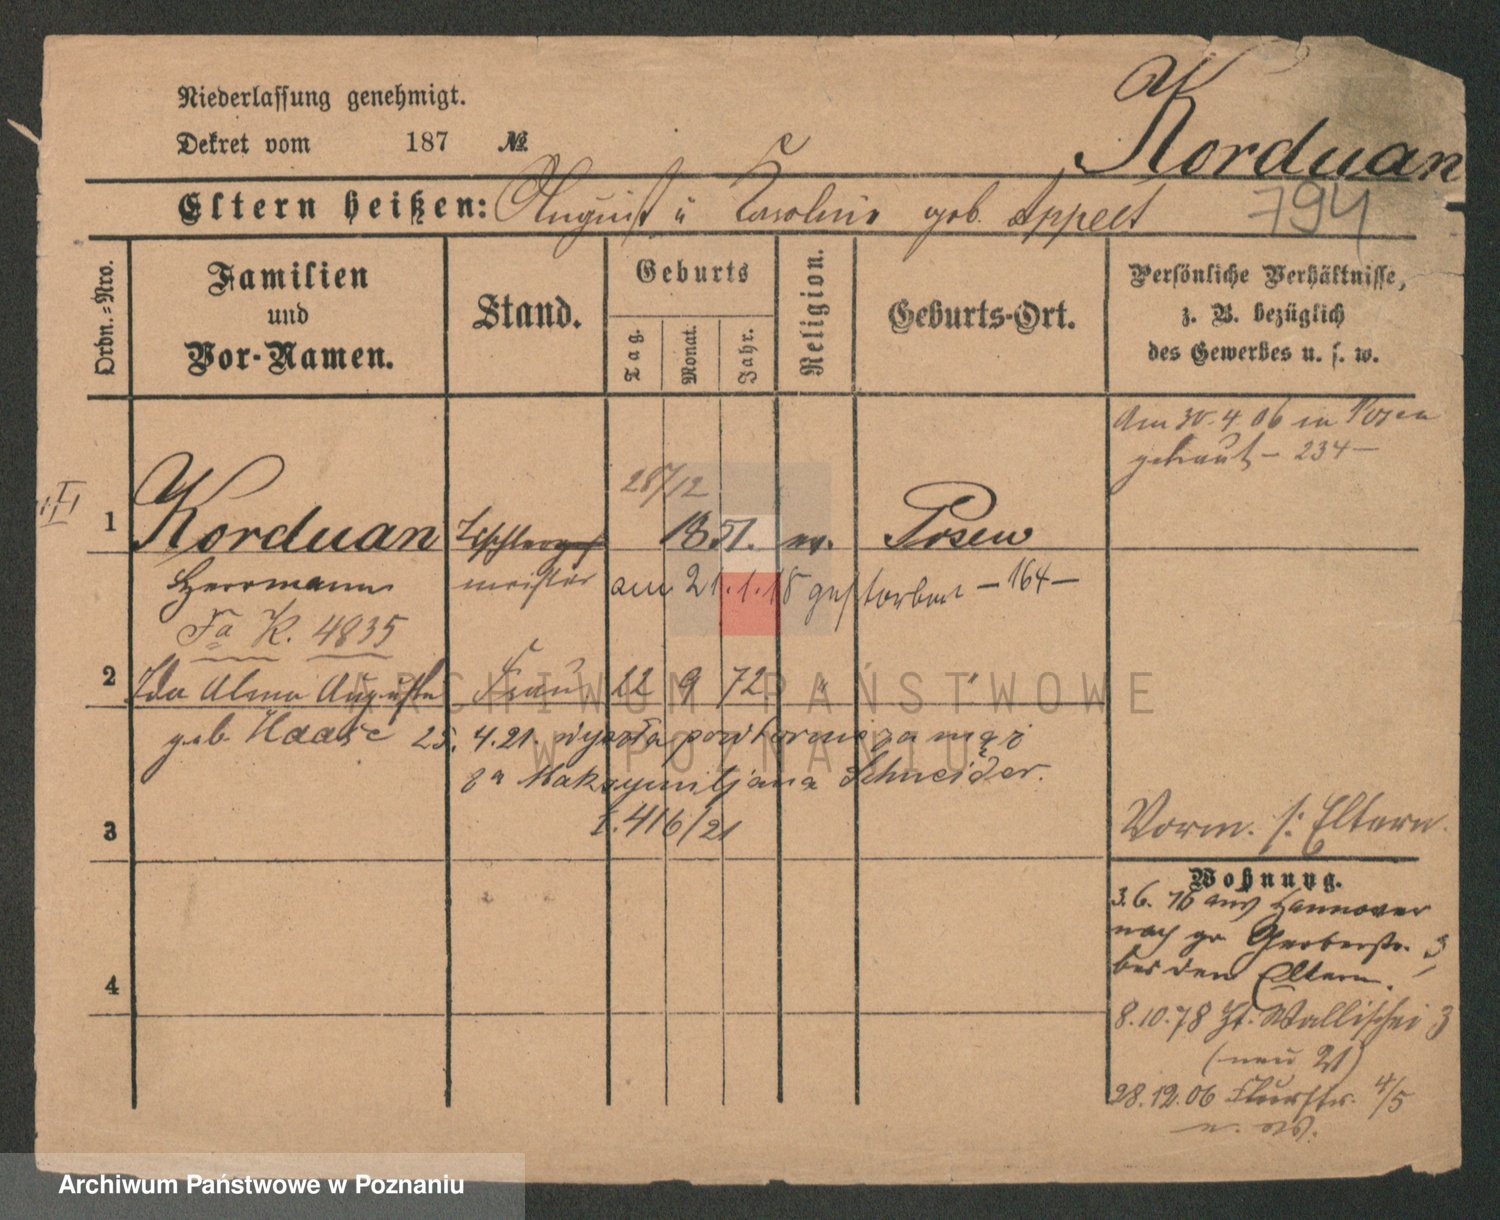 Niederlassung genehmigt.
Dekret vom 187 №
Korduan
794
Eltern heißen: August u Karoline geb. Appelt
Ordn.-Nro.
Familien
und
Vor-Namen.
Stand.
Geburts
Tag.
Monat.
Jahr.
Religion.
Geburts-Ort.
Persönliche Verhältnisse,
z. B. bezüglich
des Gewerbes u. s. w.
Am 30.4.06 in Posen
getraut - 234 -
28/12
1 Korduan Tischler 1851. ev. Posen
Herrmann meister am 21.1.18 gestorben - 164 -
Fa K. 4835
2 Ida Alma Auguste Frau 22 9 72. " "
geb. Haase 25. 4.21. wyszła powtórnie za mąż
za Maksymiljana Schneider.
3 t. 416/21
Vorm. s. Eltern.
Wohnung.
3.6.76 aus Hannover
nach gr Gerberstr. 3
bei den Eltern.
8.10.78 Wallischei 3
(neu 21)
28.12.06 Flurstr. 4/5
4
ARCHIWUM PAŃSTWOWE
W POZNANIU
Archiwum Państwowe w Poznaniu